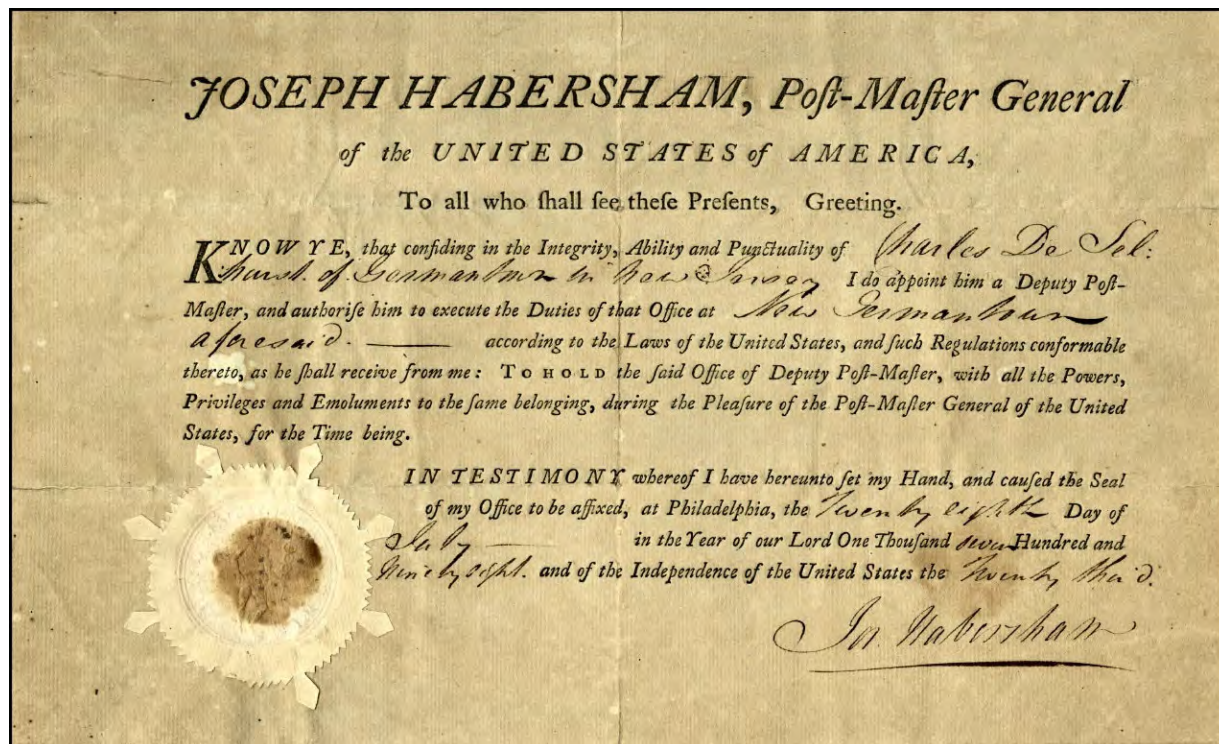 JOSEPH HABERSHAM, Poſt-Maſter General
of the UNITED STATES of AMERICA,
To all who ſhall ſee theſe Preſents, Greeting.
KNOW YE, that confiding in the Integrity, Ability and Punctuality of Charles De Sel:
hurst. of Germantown in New Jersey I do appoint him a Deputy Poſt-
Maſter, and authoriſe him to execute the Duties of that Office at New Germantown
aforesaid. —— according to the Laws of the United States, and ſuch Regulations conformable
thereto, as he ſhall receive from me: TO HOLD the ſaid Office of Deputy Poſt-Maſter, with all the Powers,
Privileges and Emoluments to the ſame belonging, during the Pleaſure of the Poſt-Maſter General of the United
States, for the Time being.
IN TESTIMONY whereof I have hereunto ſet my Hand, and cauſed the Seal
of my Office to be affixed, at Philadelphia, the Twenty eighth Day of
July —— in the Year of our Lord One Thouſand seven Hundred and
Ninety eight. and of the Independence of the United States the Twenty third.
Jos. Habersham